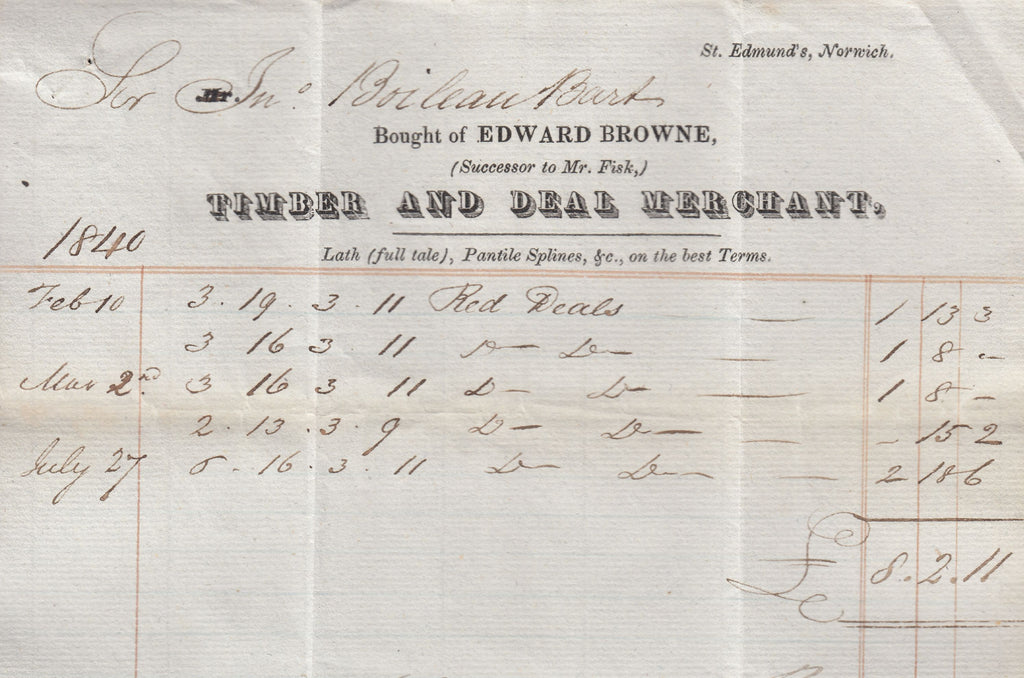 St. Edmund's, Norwich.
Sir Mr Jno Boileau Bart
Bought of EDWARD BROWNE,
(Successor to Mr. Fisk,)
TIMBER AND DEAL MERCHANT,
1840
Lath (full tale), Pantile Splines, &c., on the best Terms.
Feb 10 3 . 19 . 3 . 11 Red Deals — 1 13 3
3 16 3 . 11 Do— Do— — 1 8 –
Mar 2nd 3 16 3 11 D— D— — 1 8 –
2 . 13 . 3 . 9 D— D— — – 15 2
July 27 6 . 16 . 3 . 11 D— D— — 2 18 6
£ 8 . 2 . 11